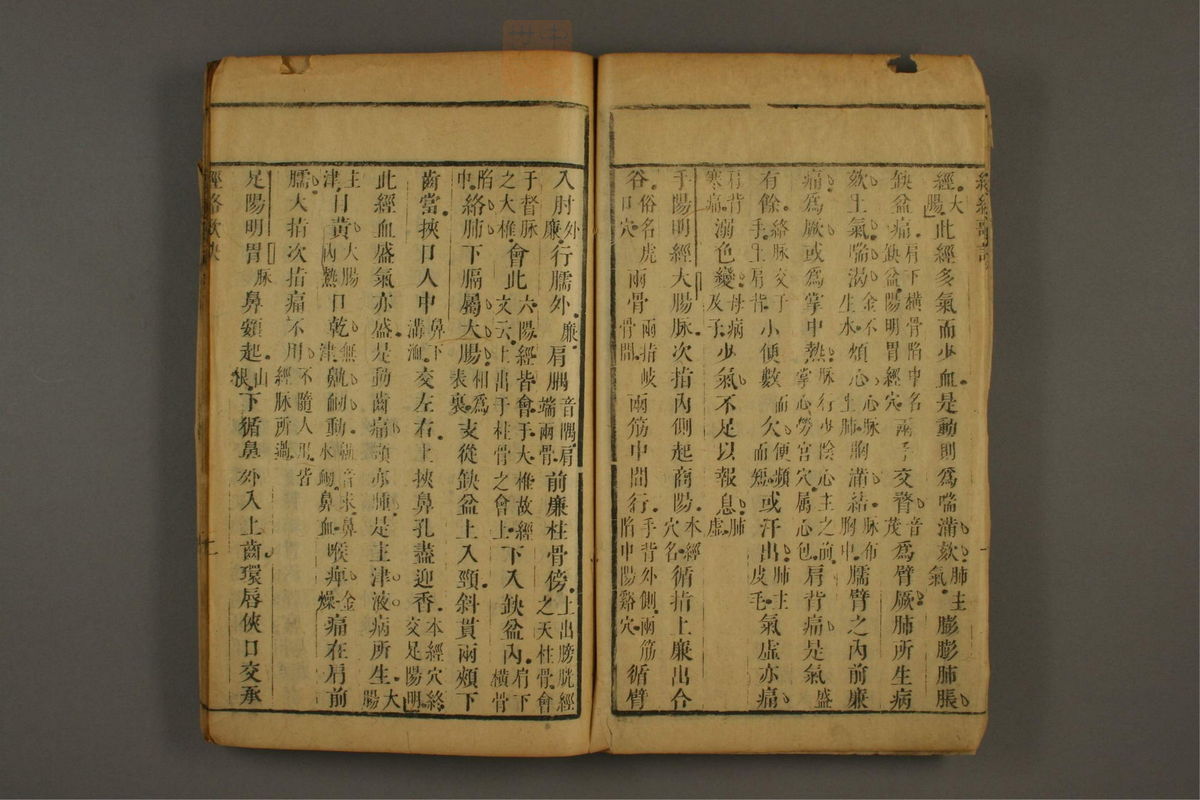 經絡歌訣
經大腸此經多氣而少血是動則為喘滿欬肺主氣膨膨肺脹
缺盆痛肩下橫骨陷中名缺盆陽明胃經穴兩手交瞀音茂為臂厥肺所生病
欬上氣喘渴金不生水煩心心脉上肺胸滿結脉布胸中臑臂之內前廉
痛為厥或為掌中熱脉行少陰心主之前掌心勞宮穴属心包肩背痛是氣盛
有餘絡脉交于手上肩背小便數而欠便頻而短或汗出肺主皮毛氣虛亦痛
肩背寒痛溺色變母病及子少氣不足以報息肺虛
手陽明經大腸脉次指內側起商陽本經穴名循指上廉出合
谷俗名虎口穴兩骨兩指岐骨間兩筋中間行手背外側兩筋陷中陽谿穴循臂
入肘外廉行臑外廉肩髃音隅肩端兩骨前廉柱骨傍上出膀胱經之天柱骨會
于督脉之大椎會此六陽經皆會于大椎故經文云上出于柱骨之會上下入缺盆內肩下橫骨
陷中絡肺下膈屬大腸相為表裏支從缺盆上入頸斜貫兩頰下
齒當挾口人中鼻下溝洫交左右上挾鼻孔盡迎香本經穴終交足陽明
此經血盛氣亦盛是動齒痛頸亦腫是主津液病所生大腸
主津目黃大腸內熱口乾無津鼽衄動鼽音求鼻水衄鼻血喉痺金燥痛在肩前
臑大指次指痛不用不隨人用皆經脉所過
足陽明胃脉鼻頞起山根下循鼻外入上齒環唇俠口交承
經絡歌訣